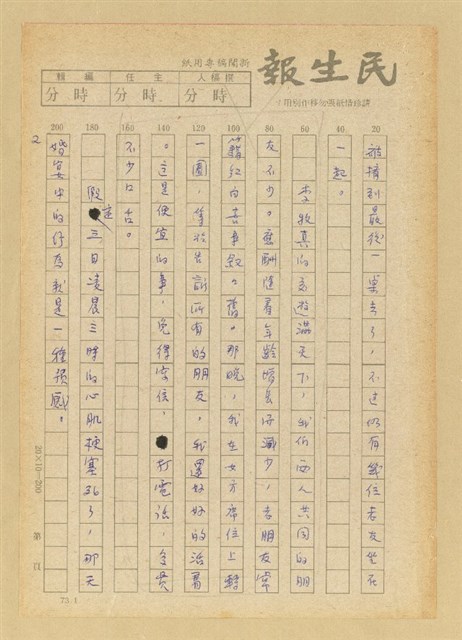 民生報
新聞稿專用紙
撰稿人 主任 編輯
時分 時分 時分
請珍惜紙張勿移作別用
被擠到最後一桌去了,不過仍有幾位老友坐在
一起。
李牧真的交遊滿天下,我們兩人共同的朋
友不少。應酬隨着年齡增長而減少,老朋友常
藉紅白喜事敘敘舊。那晚,我在女方席位上轉
一圈,等於告訴所有的朋友,我還好好的活着
。這是便宜的事,免得寫信,打電話,多費
不少口舌。
假 三日凌晨三時的心肌梗塞死了,那天
婚宴中的行為我是一種預感。
20
40
60
80
100
120
140
160
180
200
2
20×10=200
第 頁
73.1